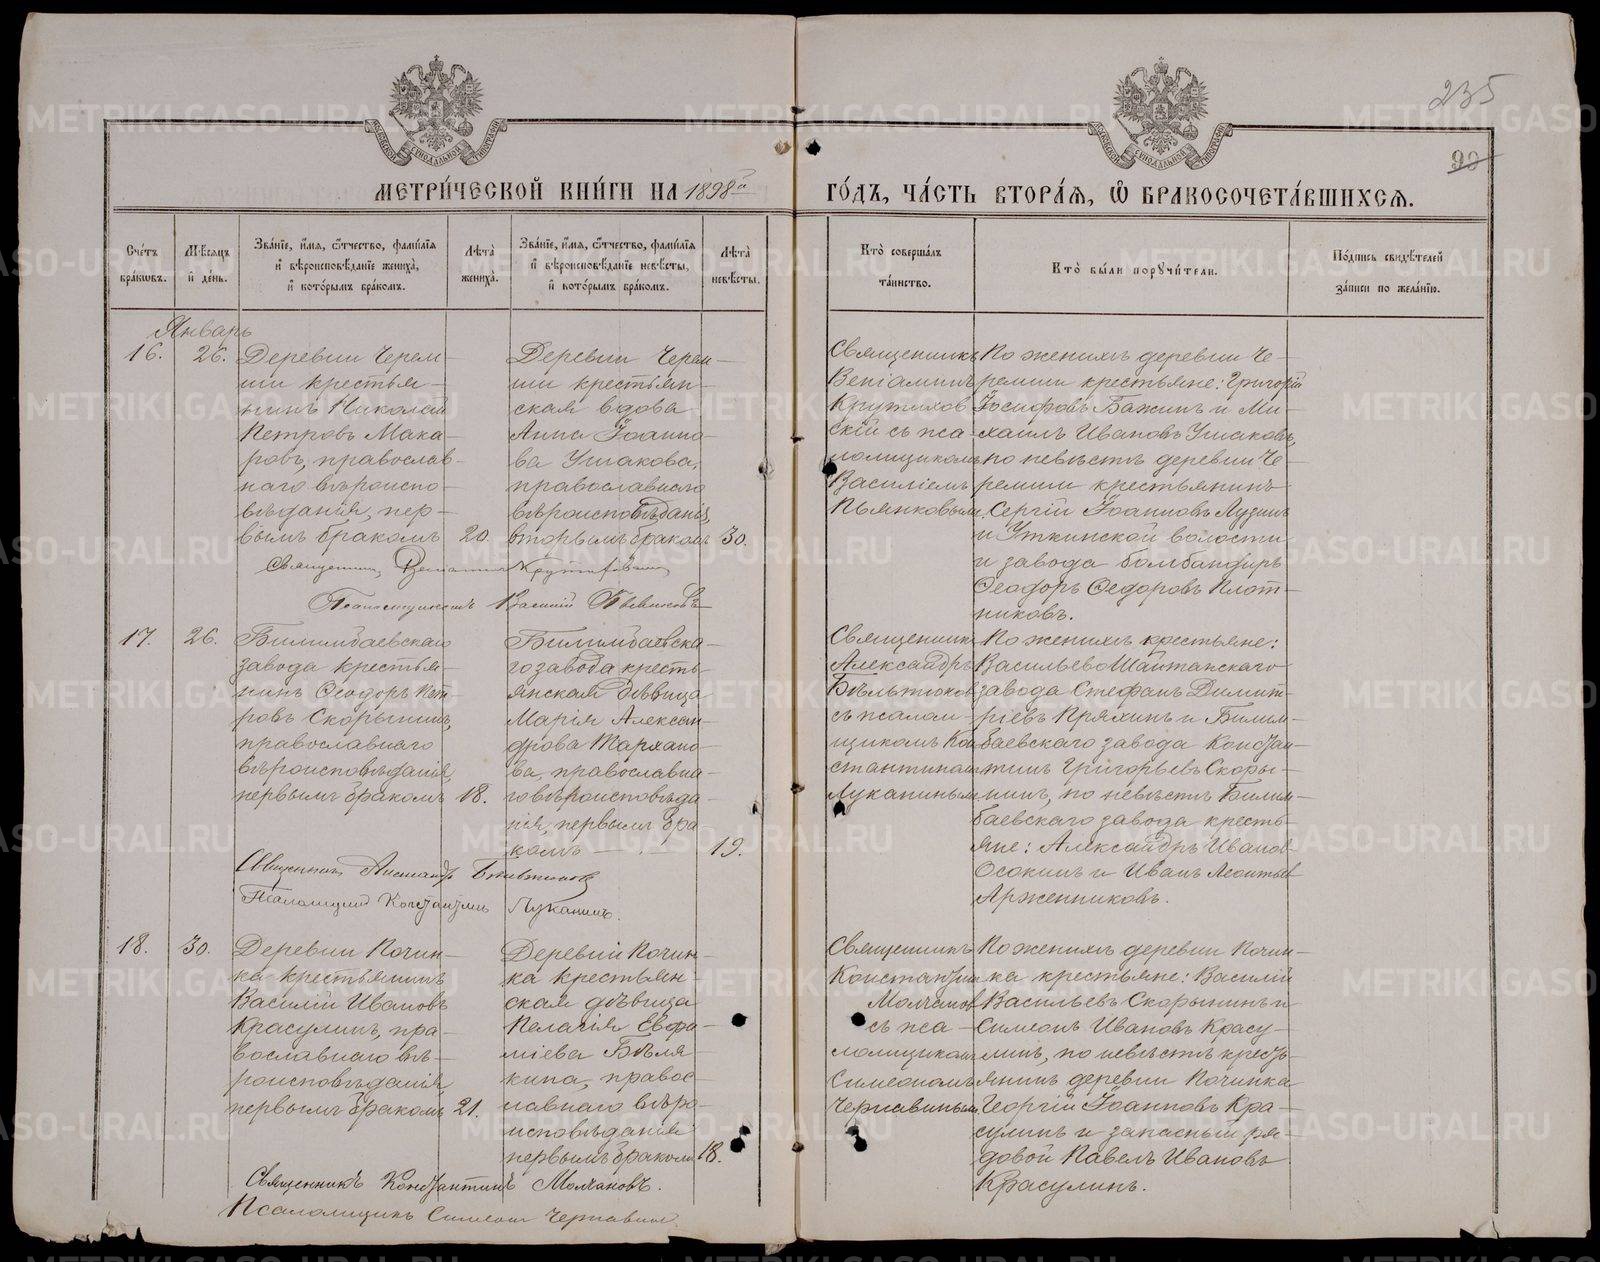 235
90
МОСКОВСКОЙ СѴНОДАЛЬНОЙ ТИПОГРАФІИ
МОСКОВСКОЙ СѴНОДАЛЬНОЙ ТИПОГРАФІИ
МЕТРИ́ЧЕСКОЙ КНИ́ГИ НА 1898й
ГО́ДЪ, ЧА́СТЬ ВТОРА́Ѧ, Ѽ БРАКОСОЧЕТА́ВШИХСѦ.
Сче́тъ
бра́кѡвъ.
Мѣ́сѧцъ
и҆ де́нь.
Зва́нїе, и҆́мѧ, ѻ҆́тчество, фами́лїѧ
и҆ вѣроисповѣ́данїе жениха̀,
и҆ кото́рымъ бра́комъ.
Лѣ́та
жениха̀.
Зва́нїе, и҆́мѧ, ѻ҆́тчество, фами́лїѧ
и҆ вѣроисповѣ́данїе невѣ́сты,
и҆ кото́рымъ бра́комъ.
Лѣ́та
невѣ́сты.
Кто̀ соверша́лъ
та́инство.
Кто̀ бы́ли порꙋчи́тели.
По́дпись свидѣ́телей
за́писи по жела́нїю.
Январь
16.
26.
Деревни Черем-
ши крестья-
нинъ Николай
Петровъ Мака-
ровъ, православ-
наго вѣроиспо-
вѣданія, пер-
вымъ бракомъ
20.
Деревни Черем-
ши крестьян-
ская вдова
Анна Іоанно-
ва Ушакова,
православнаго
вѣроисповѣданія,
вторымъ бракомъ
30.
Священникъ
Веніаминъ
Крутихов
скій съ пса-
ломщикомъ
Василіемъ
Пьянковымъ.
По женихѣ деревни Че-
ремши крестьяне: Григорій
Іосифовъ Бажинъ и Ми-
хаилъ Ивановъ Ушаковъ,
по невѣстѣ деревни Че-
ремши крестьянинъ
Сергій Іоанновъ Лузинъ
и Уткинской волости
и завода бомбандиръ
Ѳеодоръ Ѳедоровъ Плот-
никовъ.
Священникъ Веніаминъ Крутиховскій
Псаломщикъ Василій Пьянковъ
17.
26.
Билимбаевскаго
завода крестья-
нинъ Ѳеодоръ Пет-
ровъ Скорынинъ,
православнаго
вѣроисповѣданія,
первымъ бракомъ
18.
Билимбаевска-
го завода кресть-
янская дѣвица
Марія Алексан-
дрова Тархано-
ва, православна-
го вѣроисповѣда-
нія, первымъ бра
комъ
19.
Священникъ
Александръ
Бѣльтюков
съ псалом-
щикомъ Кон
стантиномъ
Луканинымъ
По женихѣ крестьяне:
Васильево Шайтанскаго
завода Стефанъ Димит-
ріевъ Пряхинъ и Билим-
баевскаго завода Констан-
тинъ Григорьевъ Скоры-
нинъ, по невѣстѣ Билим-
баевскаго завода кресть-
яне: Александръ Иванов
Осокинъ и Иванъ Леонтьев
Арженниковъ.
Священникъ Александръ Бѣльтюковъ
Псаломщикъ Константинъ Луканинъ.
18.
30.
Деревни Почин-
ка крестьянинъ
Василій Ивановъ
Красулинъ, пра-
вославнаго вѣ-
роисповѣданія,
первымъ бракомъ
21.
Деревни Почин-
ка крестьян-
ская дѣвица
Пелагія Евфи-
міева Бѣля-
кина, правос-
лавнаго вѣро-
исповѣданія
первымъ бракомъ
18.
Священникъ
Константин
Молчанов
съ пса-
ломщикомъ
Симеономъ
Чернавинымъ
По женихѣ деревни Почин-
ка крестьяне: Василій
Васильевъ Скорынинъ и
Симеонъ Ивановъ Красу-
линъ, по невѣстѣ кресть-
янинъ деревни Починка
Георгій Іоанновъ Кра-
сулинъ и запасный ря-
довой Павелъ Ивановъ
Красулинъ.
Священникъ Константинъ Молчановъ.
Псаломщикъ Симеонъ Чернавинъ.
METRIKI.GASO-URAL.RU